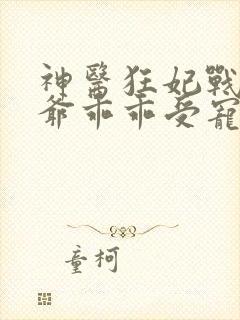 神醫狂妃戰
爺乖乖受寵
童柯